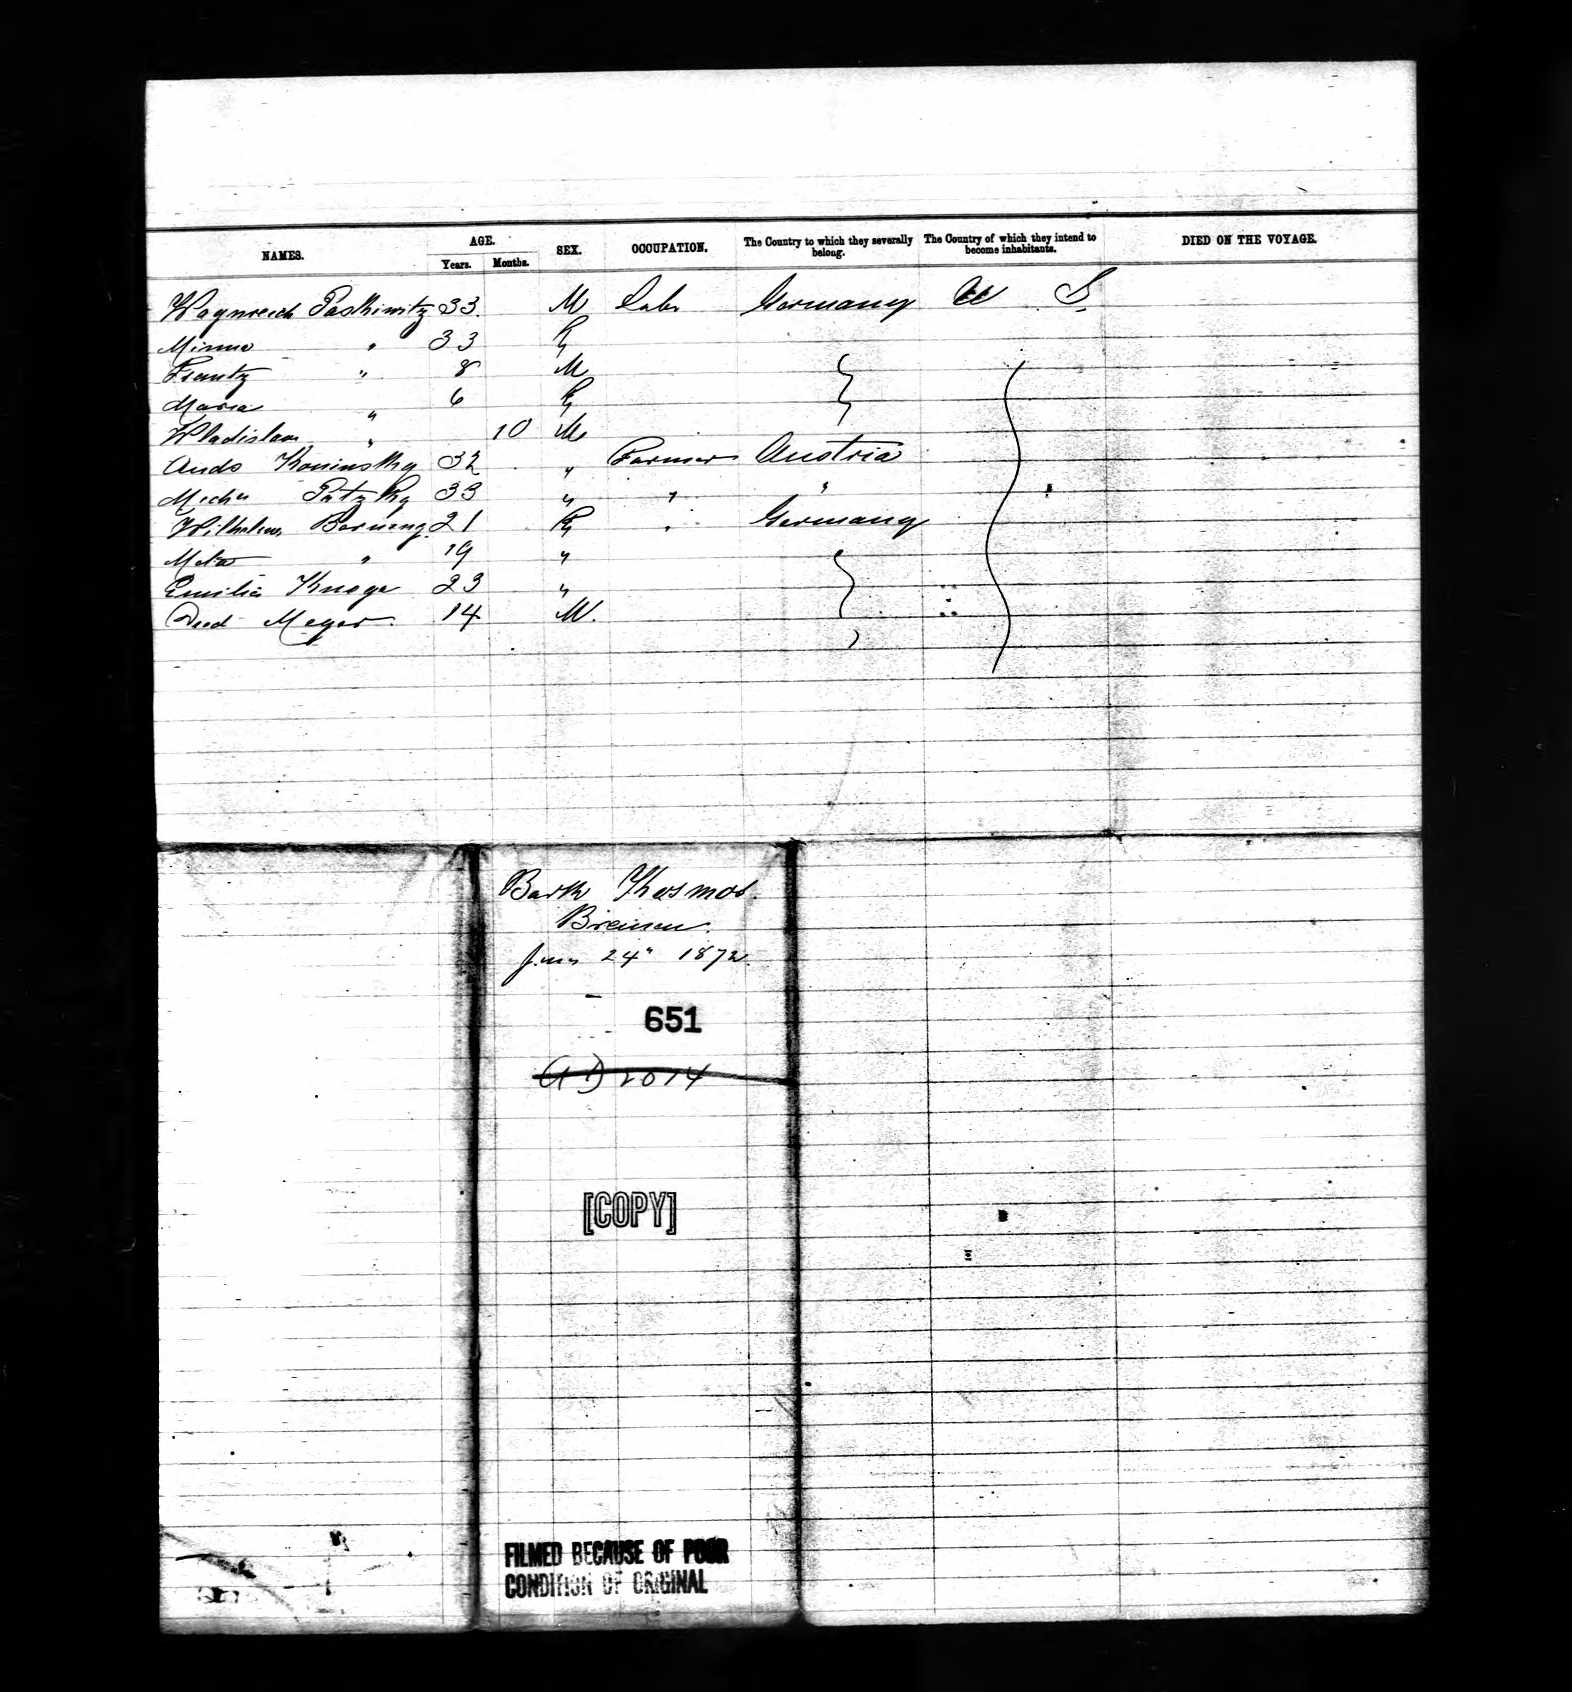 NAMES. AGE. SEX. OCCUPATION. The Country to which they severally belong. The Country of which they intend to become inhabitants. DIED ON THE VOYAGE.
Years. Months.
Paskiwitz 33. M Labr Germany U S
Minna " 33 F
Frantz " 8 M
Maria " 6 F
Wladislaw " 10 M
Koninsky 32 " Farmer Austria
33 " " "
21 F " Germany
Meta " 19 "
Emilie 23 "
Died Meyer. 14 M.
Bark
Bremen.
24" 1872
651
2014
[COPY]
FILMED BECAUSE OF POOR
CONDITION OF ORIGINAL